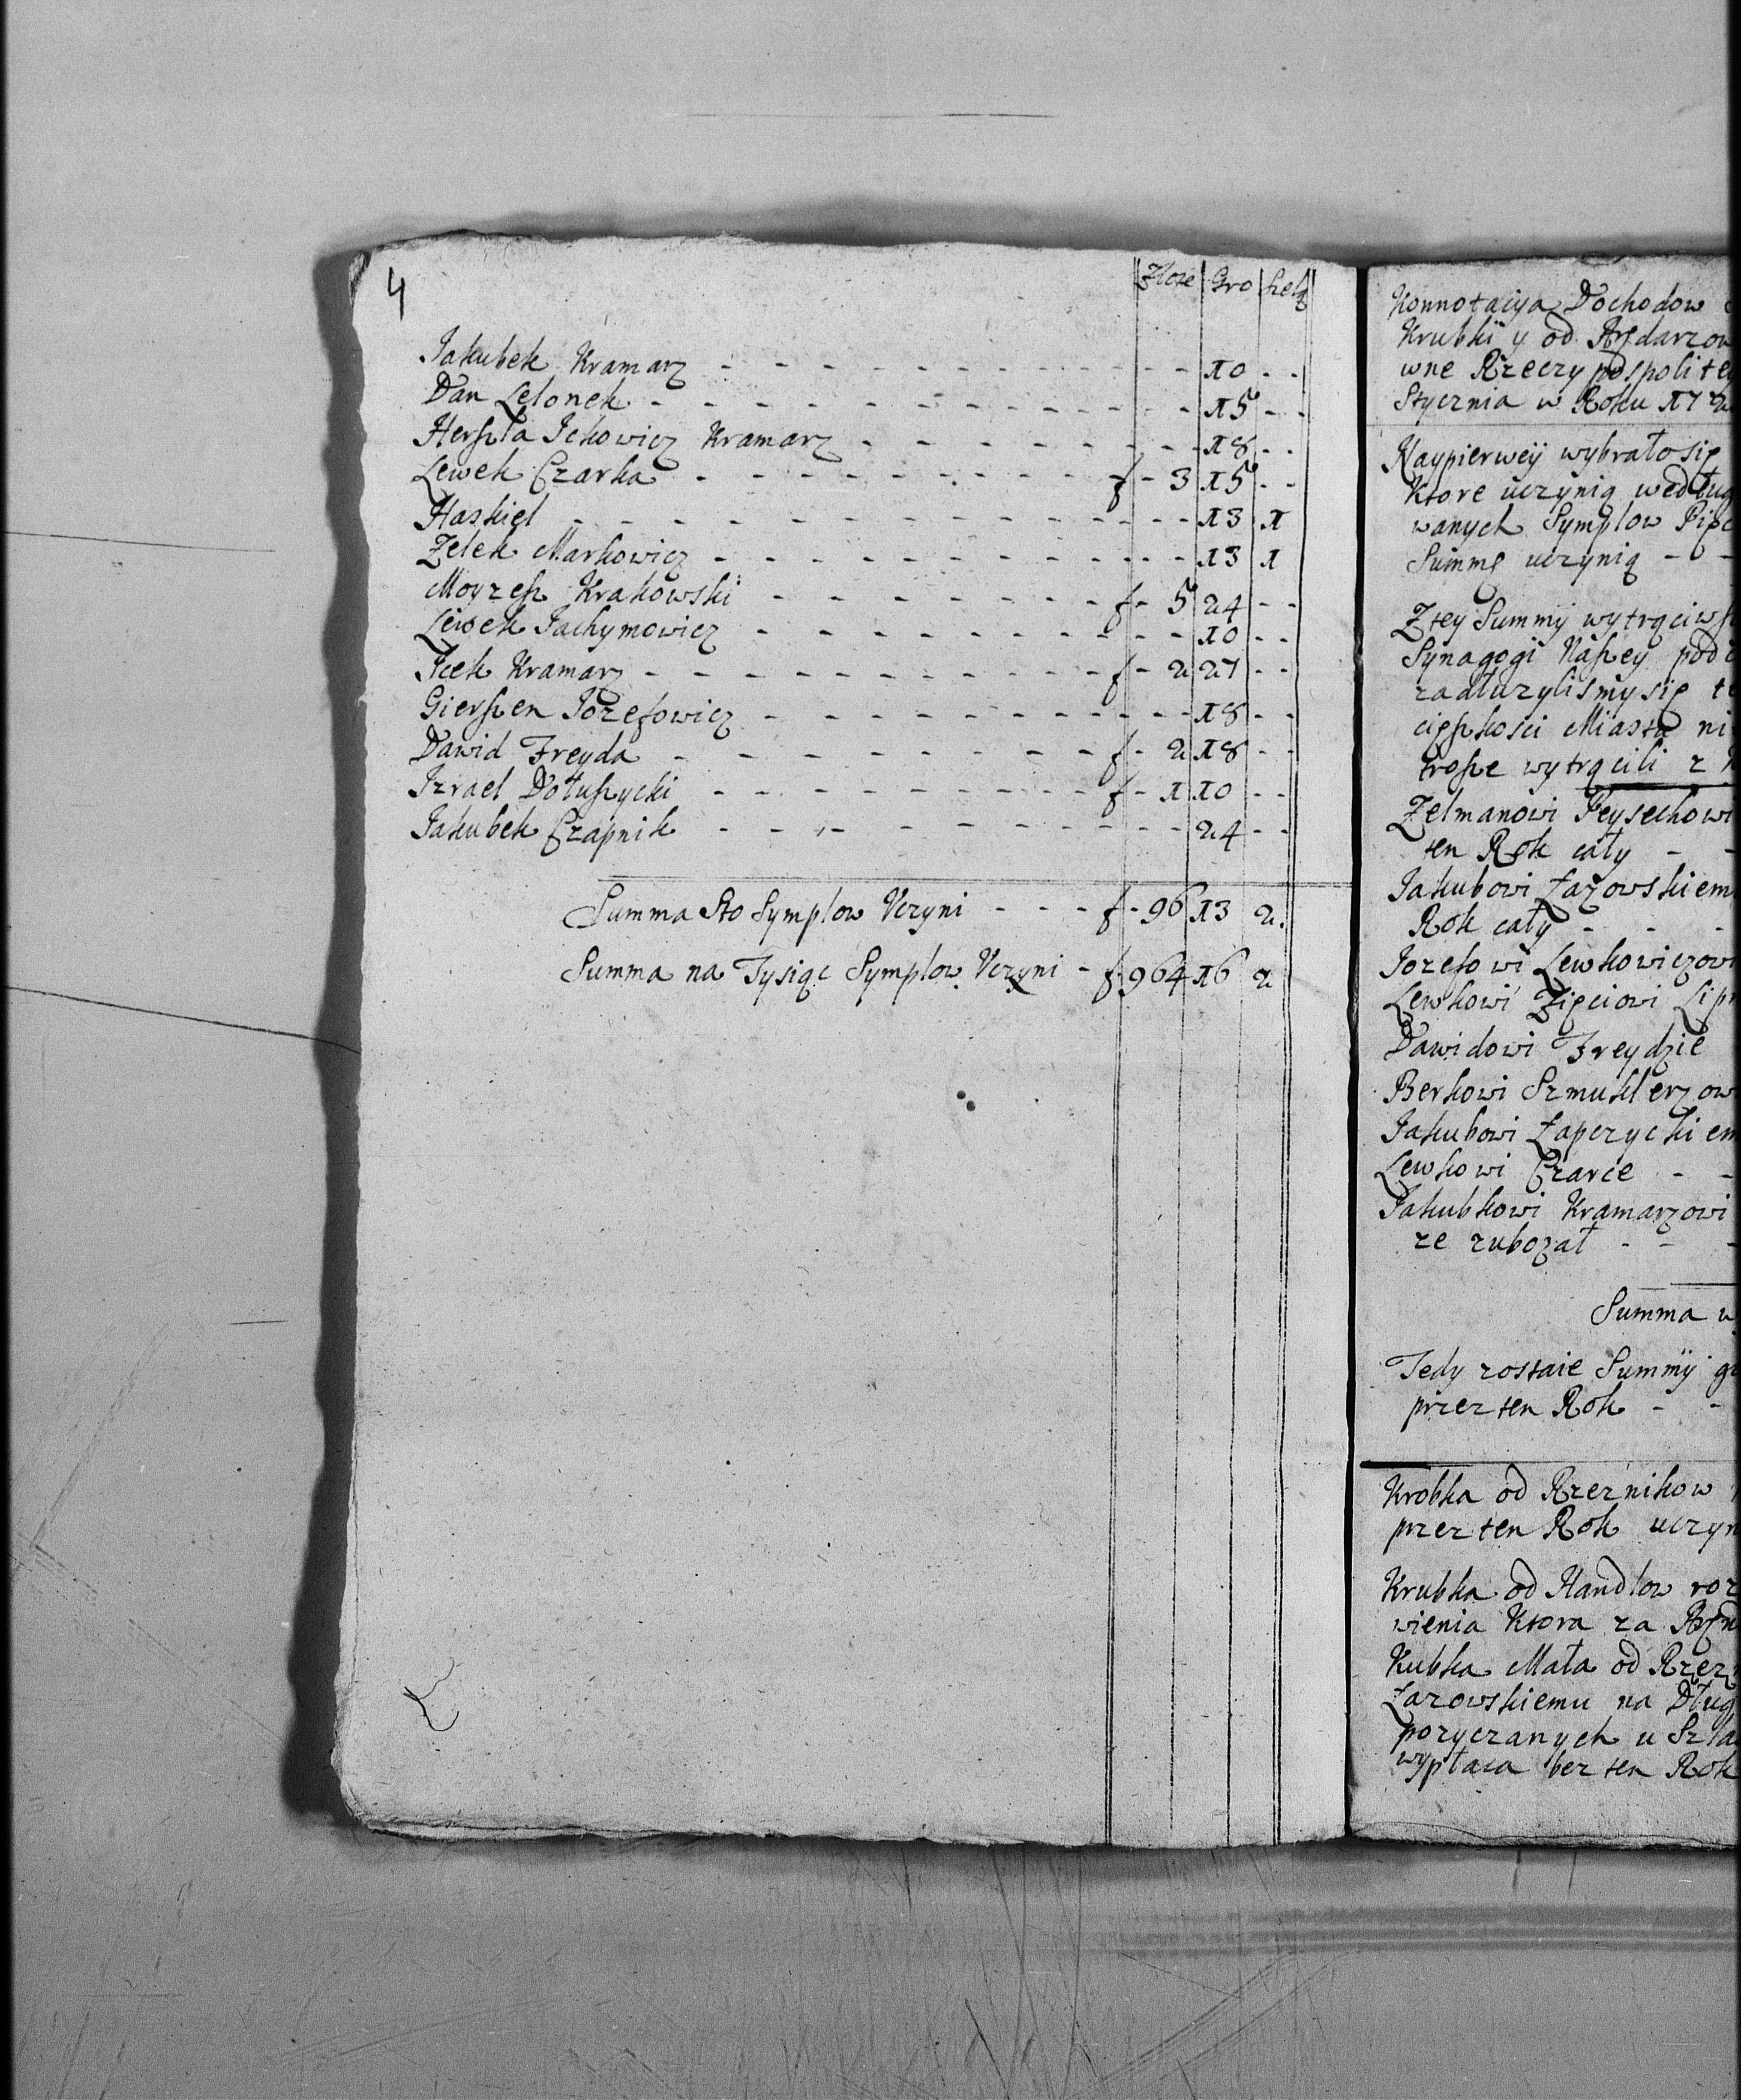 4
Złote Gro Szelą
Jakubek Kramarz - - - - - - - - - - - 10 - -
Dan Lelonek - - - - - - - - - - - 15 - -
Herszla Ickowicz Kramarz - - - - - - - 18 - -
Lewek Czarka - - - - - - - - f - 3 15 - -
Haskiel - - - - - - - - - - - - 13 1
Zelek Markowicz - - - - - - - - - - 13 1
Moyzesz Krakowski - - - - - - - f - 5 24 - -
Lewek Jachymowicz - - - - - - - - - 10 - -
Icek Kramarz - - - - - - - - - f - 2 27 - -
Gierszen Jozefowicz - - - - - - - - - 18 - -
Dawid Freyda - - - - - - - - f - 2 18 - -
Izrael Dołuszycki - - - - - - - f - 1 10 - -
Jakubek Czapnik - - - - - - - - - 24 - -
Summa Sto Symplow Vczyni - - - f - 96 13 2.
Summa na Tysiąc Symplow Vczyni - f 964 16 2
Konnotaciya Dochodow
Krubki y od Arędarzow
wne Rzeczy pospolitey
Stycznia w Roku 172
Naypierwey wybrało się
Ktore uczynią według
wanych Symplow Pięc
Summę uczynią - -
Z tey Summy wytrąciwsz
Synagogi Naszey pod
zadłuzylismy się
cięszkosci Miasta ni
trosze wytrącili z
Zelmanowi Feysechowi
ten Rok cały - -
Jakubowi Łazowskiem
Rok cały - - -
Jozefowi Lewkowiczowi
Lewkowi Zięciowi Lip
Dawidowi Freydzie
Berkowi Szmuklerzow
Jakubowi Łapczyckiem
Lewkowi Czarce - -
Jakubkowi Kramarzowi
ze zubozał - - -
Summa w
Tedy zostaie Summy
przez ten Rok - -
Krobka od Rzeznikow
przez ten Rok uczyn
Krubka od Handlow roz
wienia Ktora za Aręn
Kubka Mała od Rzez
Łazowskiemu na Dług
pozyczanych u Szla
wypłaca bez ten Rok